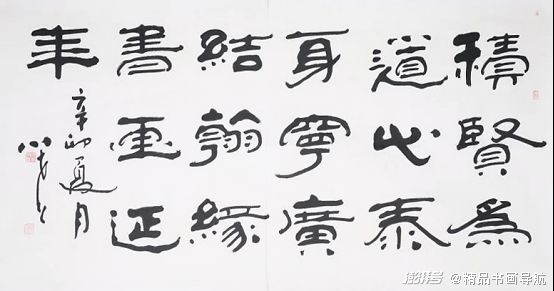 積賢為
道心泰
身寧廣
結翰緣
書畫延
年
辛卯夏月
澎湃号 @精品书画导航